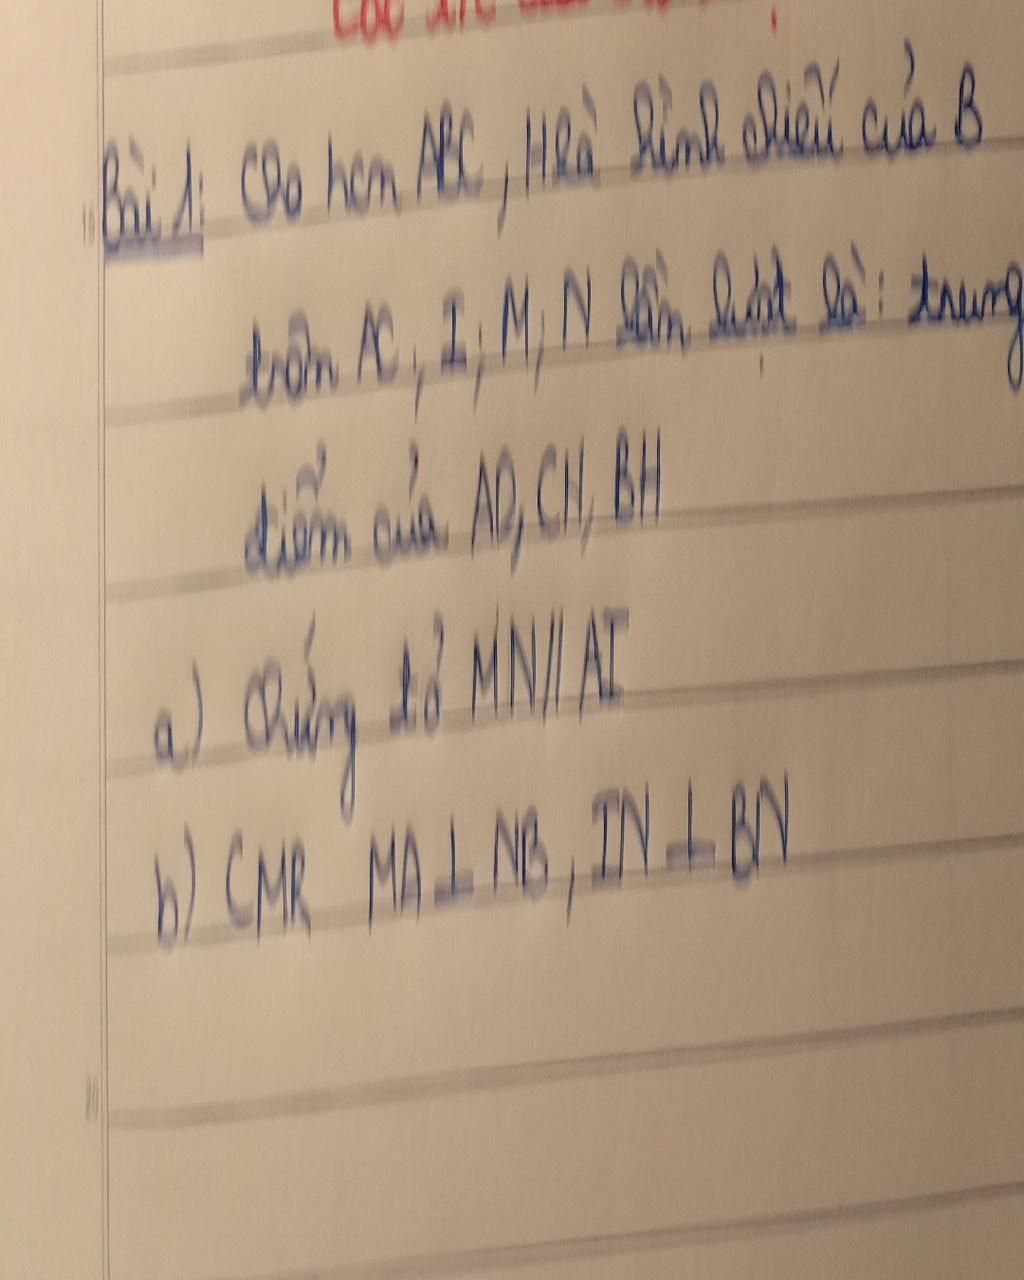 Bài 1: Cho hcn ABC, H là hình chiếu của B
trên AC, I; M; N lần lượt là: trung
điểm của AD, CH, BH
a) Chứng tỏ MN // AI
b) CMR MA ⊥ NB, IN ⊥ BN